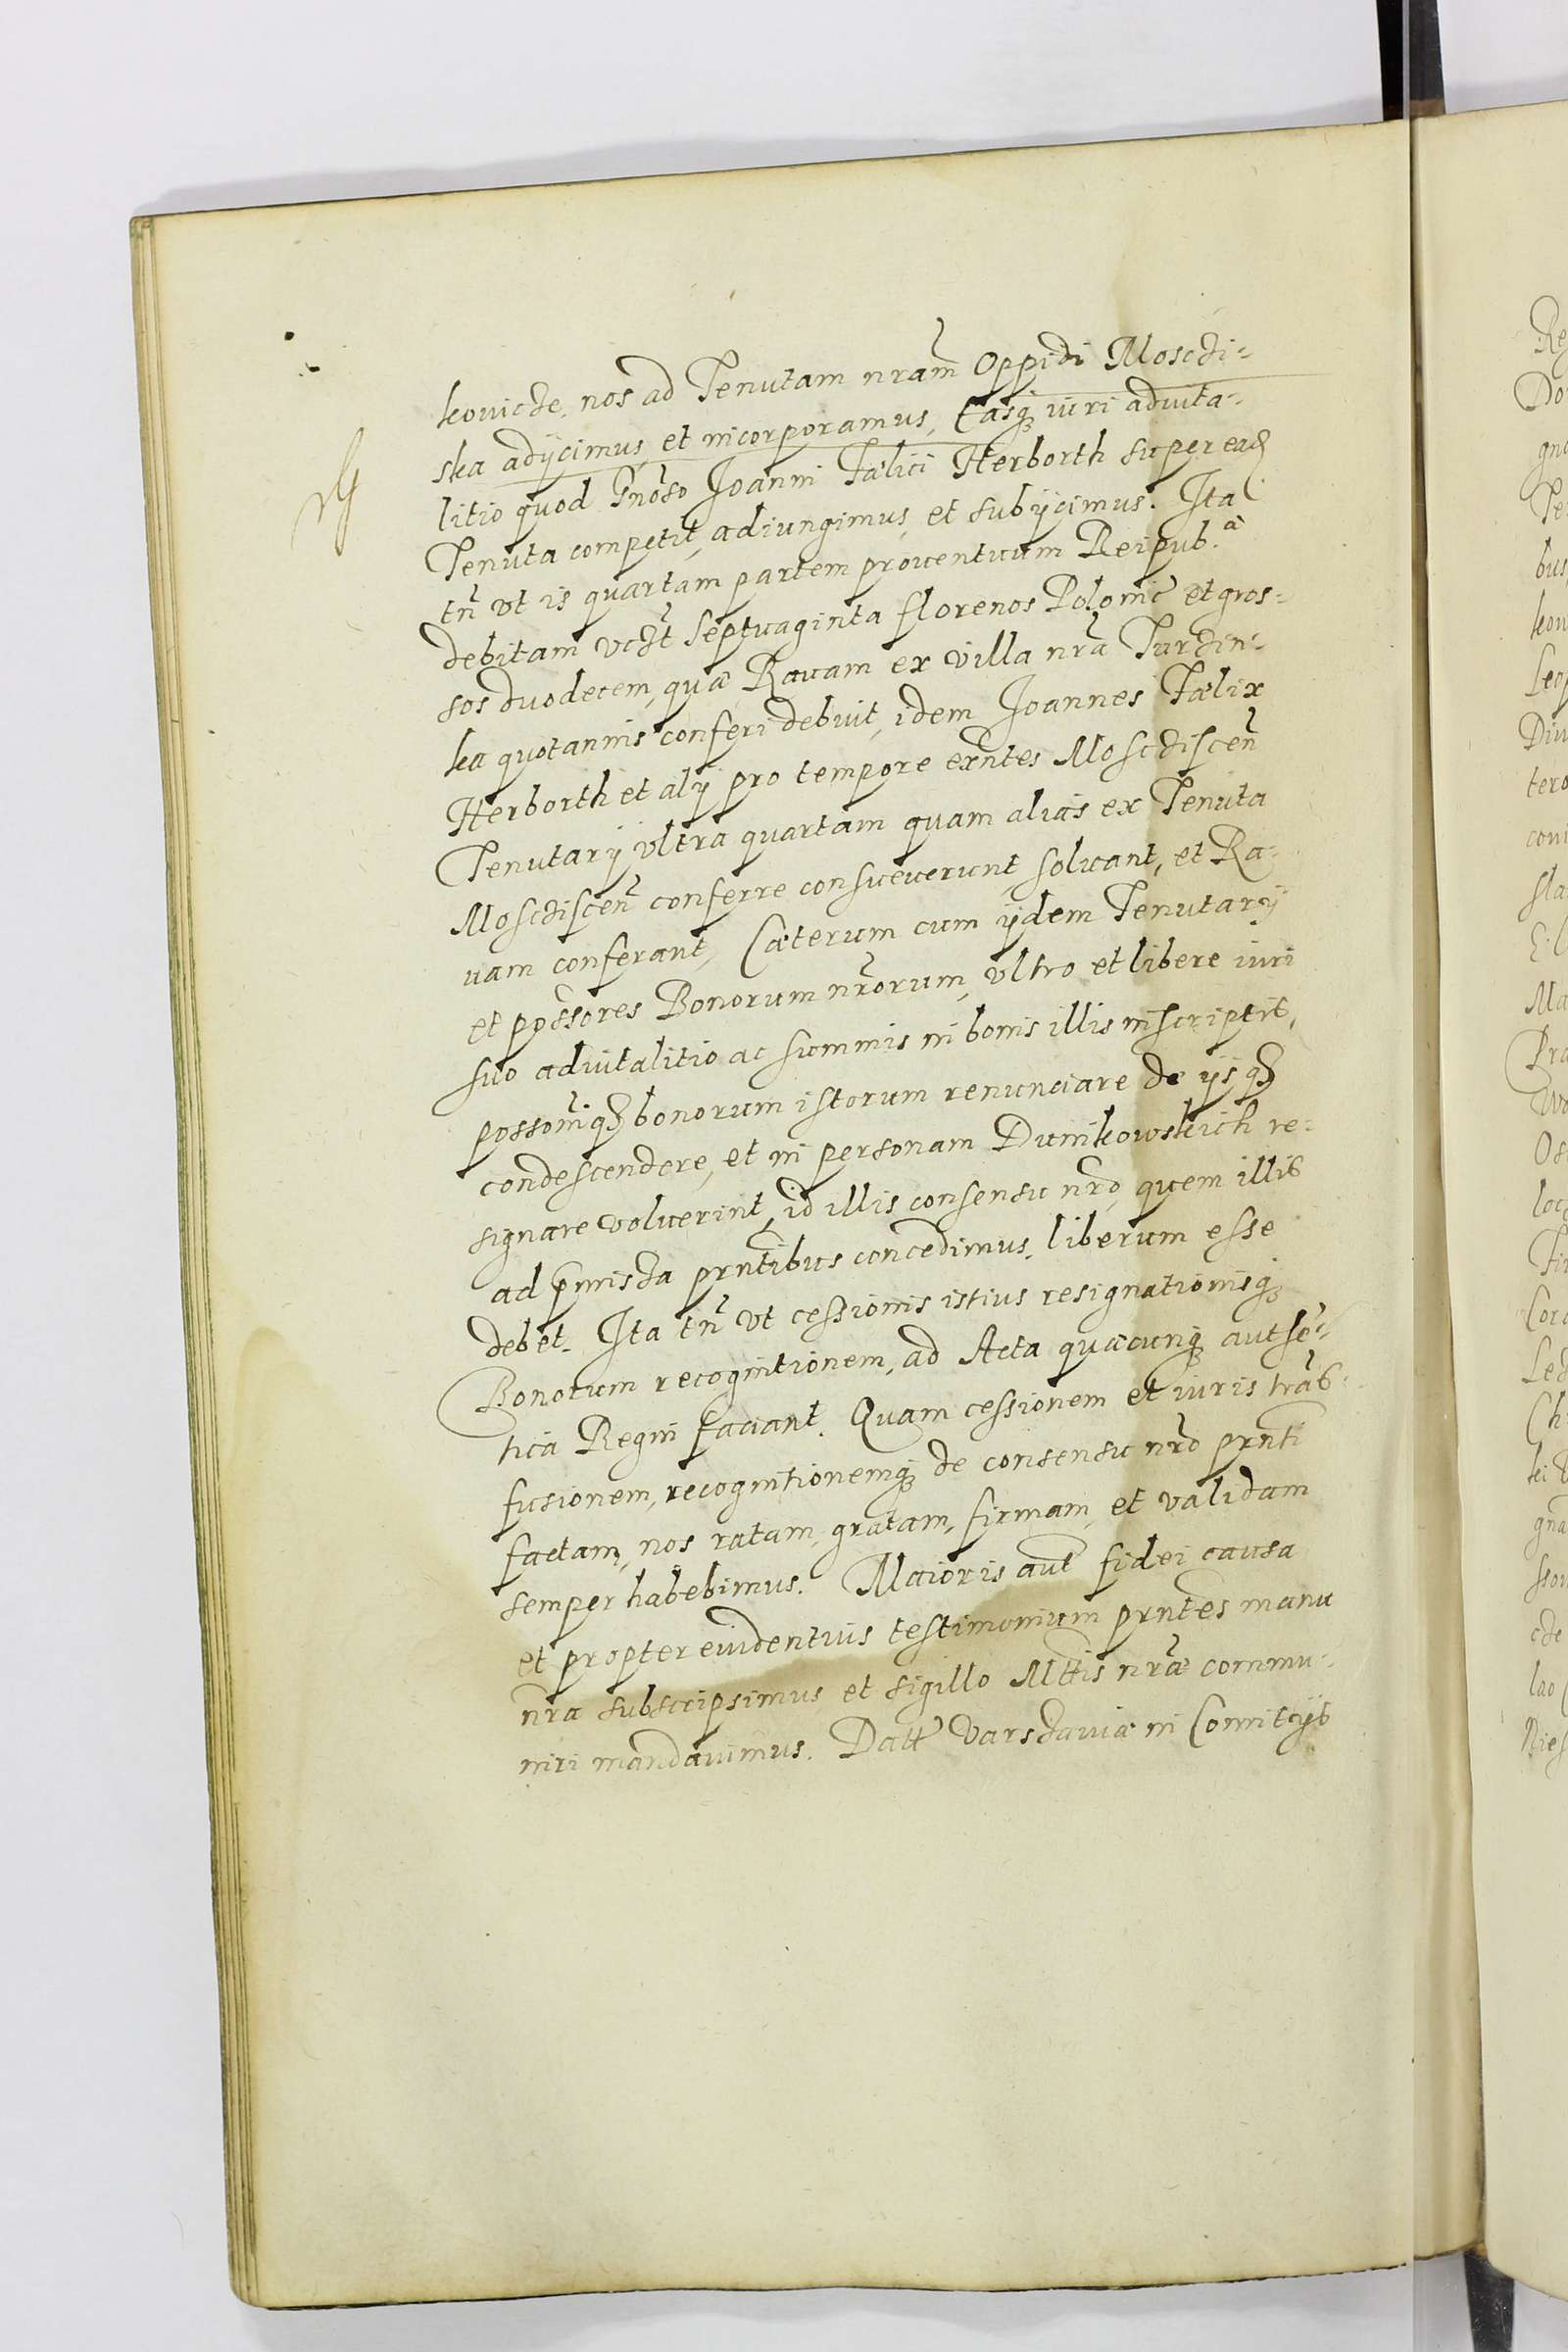 kowicze, nos ad Tenutam nram̃ Oppidi Mosczi-
ska adijcimus et incorporamus, Easq3 iuri aduita-
litio quod Gnõso Joanni Fælici Herborth super ead
Tenuta competit, adiungimus et subijcimus. Ita
tñ vt is quartam partem prouentuum Reipub.ᵃᵉ
debitam vczt̃ septuaginta florenos Polonic̃ et gros-
sos duodecem, quæ Rauam ex villa nrã Turczin-
ka quotannis conferi debuit, idem Joannes Fælix
Herborth et alij pro tempore exñtes Mosczisceñ
Tenutarij vltra quartam quam alias ex Tenuta
Mosczisceñ conferre consueuerunt, soluant, et Ra-
uam conferant, Cæterum cum ijdem Tenutarij
et poss̃ores Bonorum nrõrum, vltro et libere iuri
suo aduitalitio ac summis in bonis illis inscriptis,
possonĩq3 bonorum istorum renunciare de ijsq3
condescendere, et in personam Dunikowskich re-
signare voluerint, id illis consensu nrõ, quem illis
ad p̃missa prñtibus concedimus, liberum esse
debet. Ita tñ vt cessionis istius resignationisq3
Bonorum recognitionem, ad Acta quæcunq3 autẽ-
tica Regni faciant. Quam cessionem et iuris trãs-
fusionem, recognitionemq3 de consensu nrõ prñti
factam, nos ratam, gratam, firmam, et validam
semper habebimus. Maioris aut̃ fidei causa
et propter euidentius testimonium prñtes manu
nr̃a subscripsimus et sigillo Mt̃tis nrã commu-
niri mandauimus. Datt Varsczauiæ in Comitijs
Re
Do
gno
Te
bus
kow
Leo
Diu
tero
sla
Ma
Pra
Os
loc
Fir
Cora
Led
Ch
gna
cze
lao
Nies